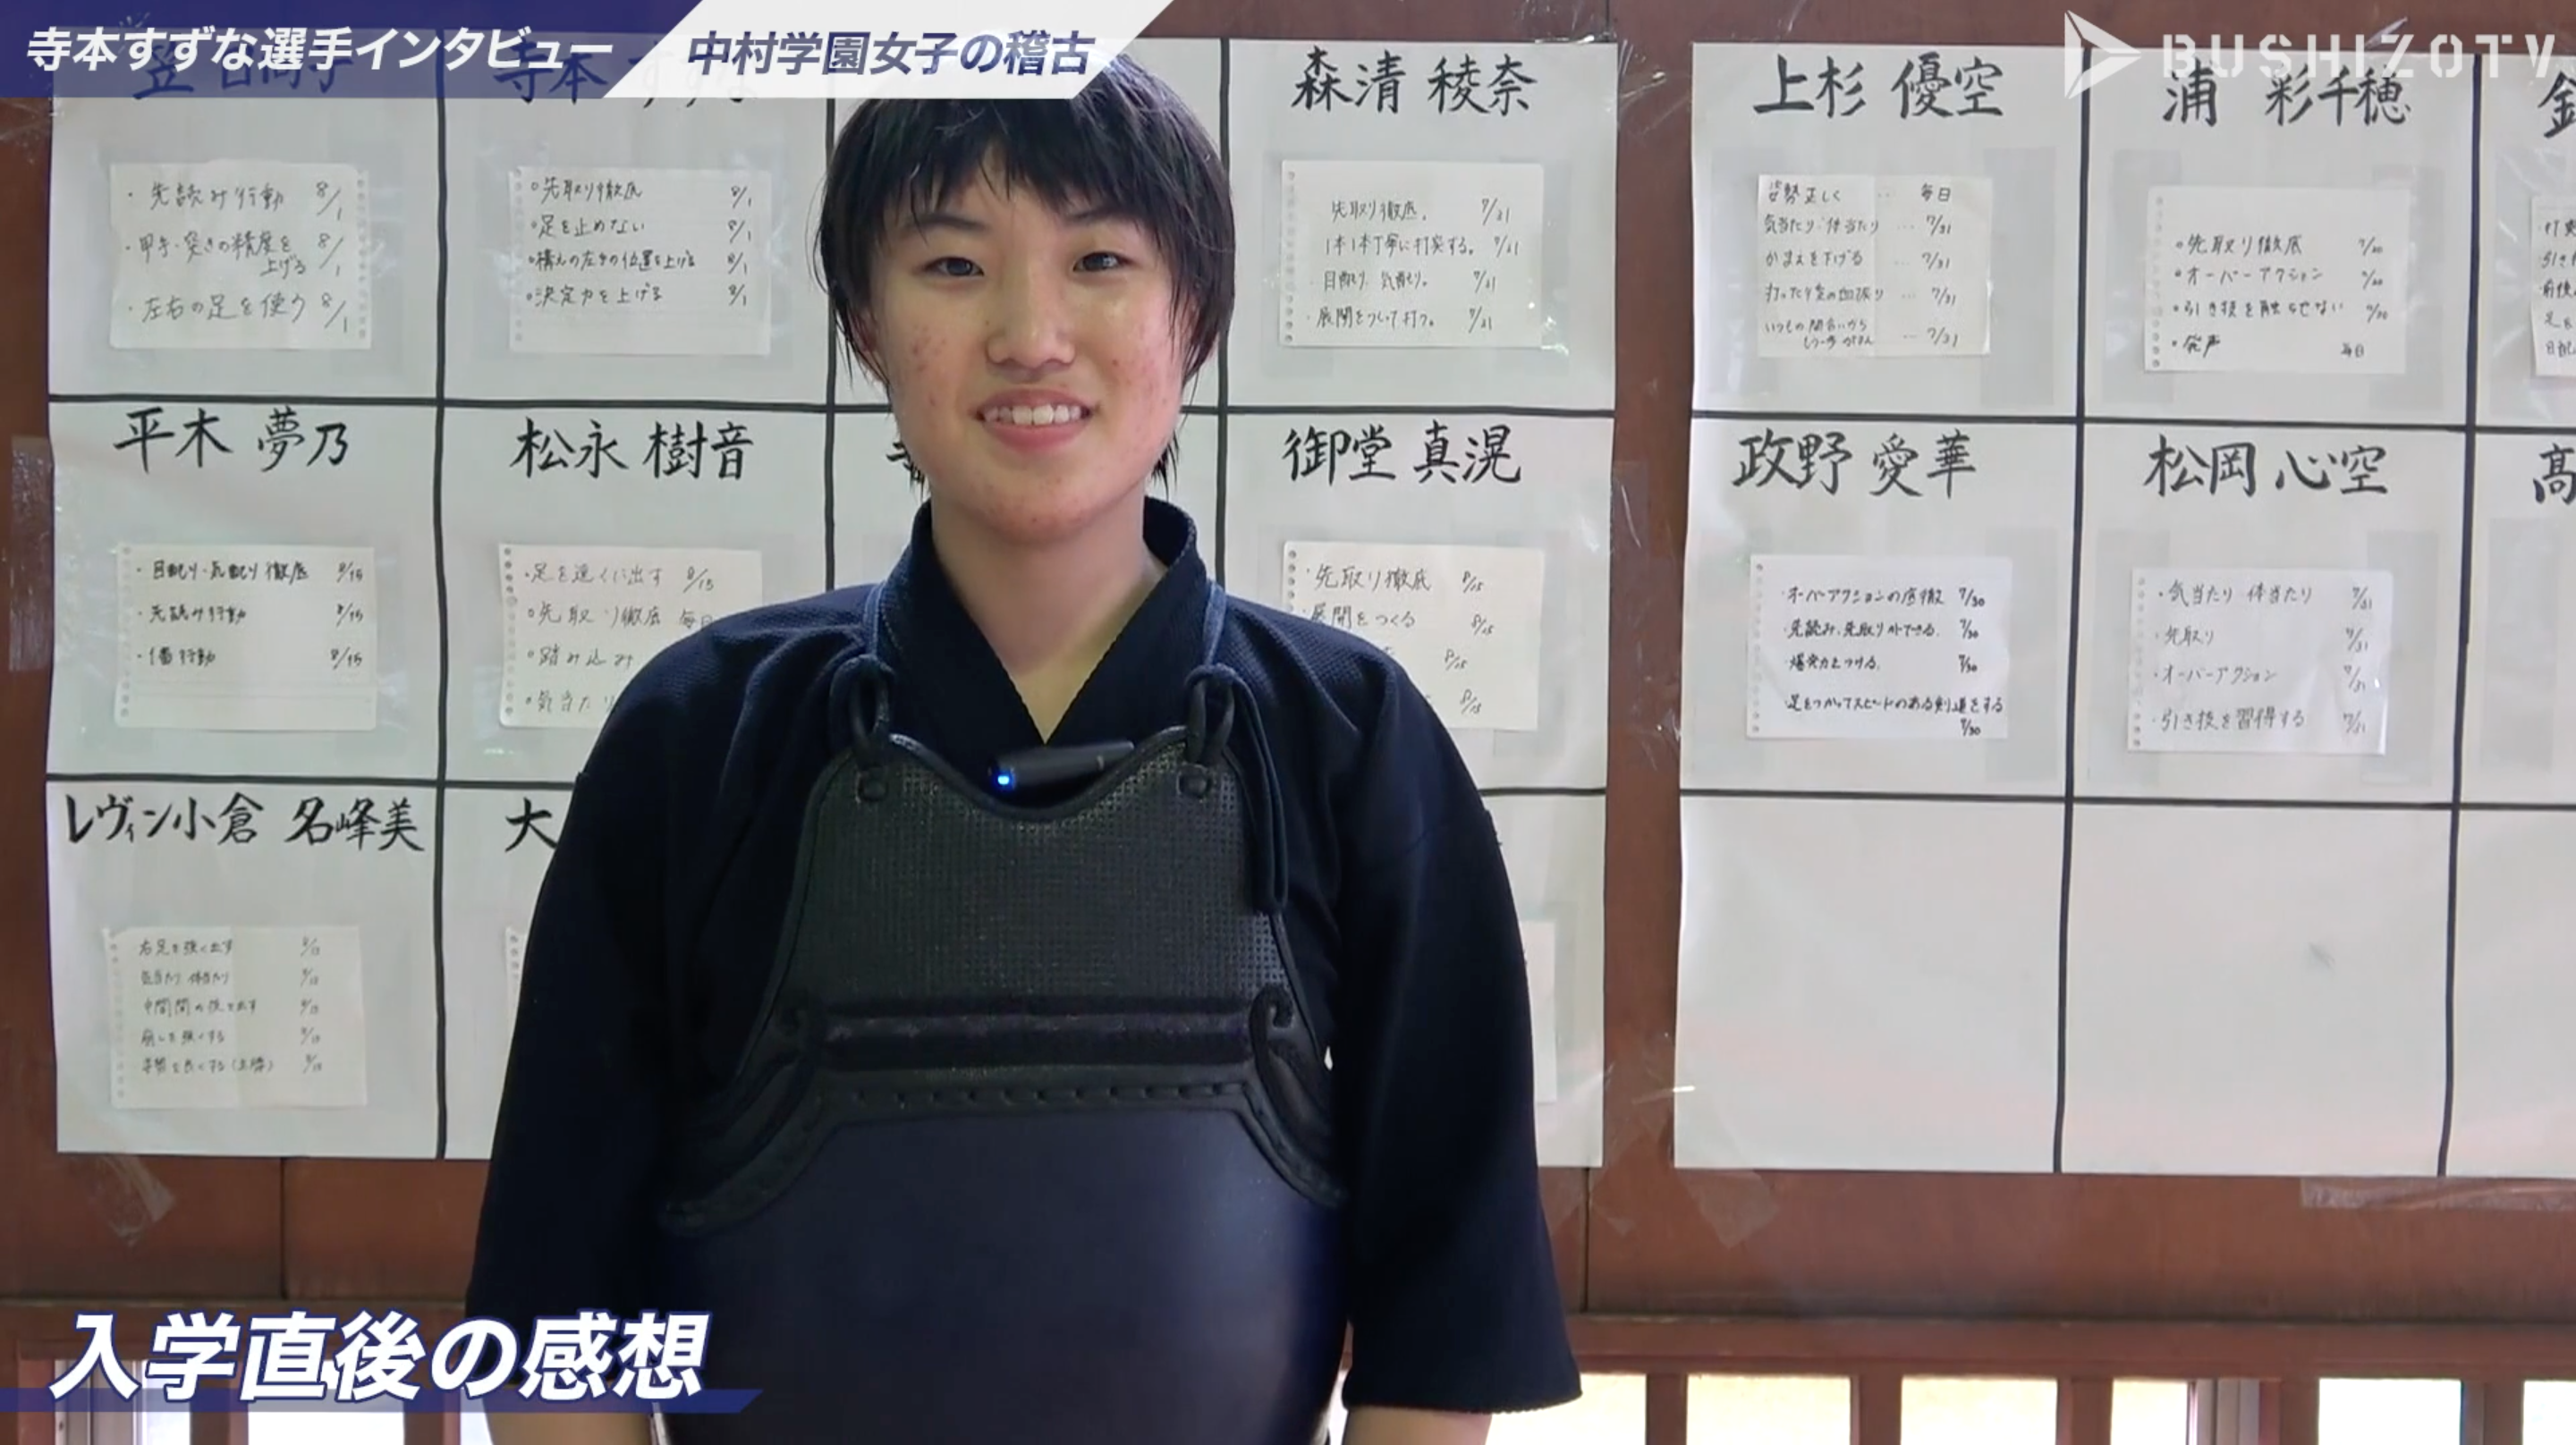 寺本すずな選手インタビュー
中村学園女子の稽古
BUSHIZOTV
寺本
森清 稜奈
上杉 優空
浦 彩千穂
・先読み行動 8/1
・甲手・突きの精度を 8/1
上げる
・左右の足を使う 8/1
○先取り徹底 8/1
○足を止めない 8/1
○構えの左手の位置を上げる 8/1
○決定力を上げる 8/1
先取り徹底。 7/31
1本1本丁寧に打突する。 7/31
・目配り、気配り。 7/31
・展開をつくって打つ。 7/31
姿勢正しく … 毎日
気当たり・体当たり … 7/31
かまえを下げる … 7/31
… 7/31
いつもの間合いから
… 7/31
○先取り徹底 7/30
○オーバーアクション 7/30
○引き技を触らせない 7/30
・発声 毎日
平木 夢乃
松永 樹音
御堂 真滉
政野 愛華
松岡 心空
髙
・目配り・気配り徹底 8/15
・先読み行動 8/15
・1番行動 8/15
・足を速くに出す 8/15
○先取り徹底 毎日
○踏み込み
○気当たり
・先取り徹底 8/15
・展開をつくる 8/15
8/15
8/15
・オーバーアクションの底徹 7/30
・先読み、先取りができる。 7/30
・爆発力をつける。 7/30
・足をつかってスピードのある剣道をする
7/30
・気当たり 体当たり 7/31
・先取り 7/31
・オーバーアクション 7/31
・引き技を習得する 7/31
レヴィン小倉 名峰美
大
右足を強く出す 8/15
気当たり 体当たり 8/15
崩しを強くする 8/15
入学直後の感想